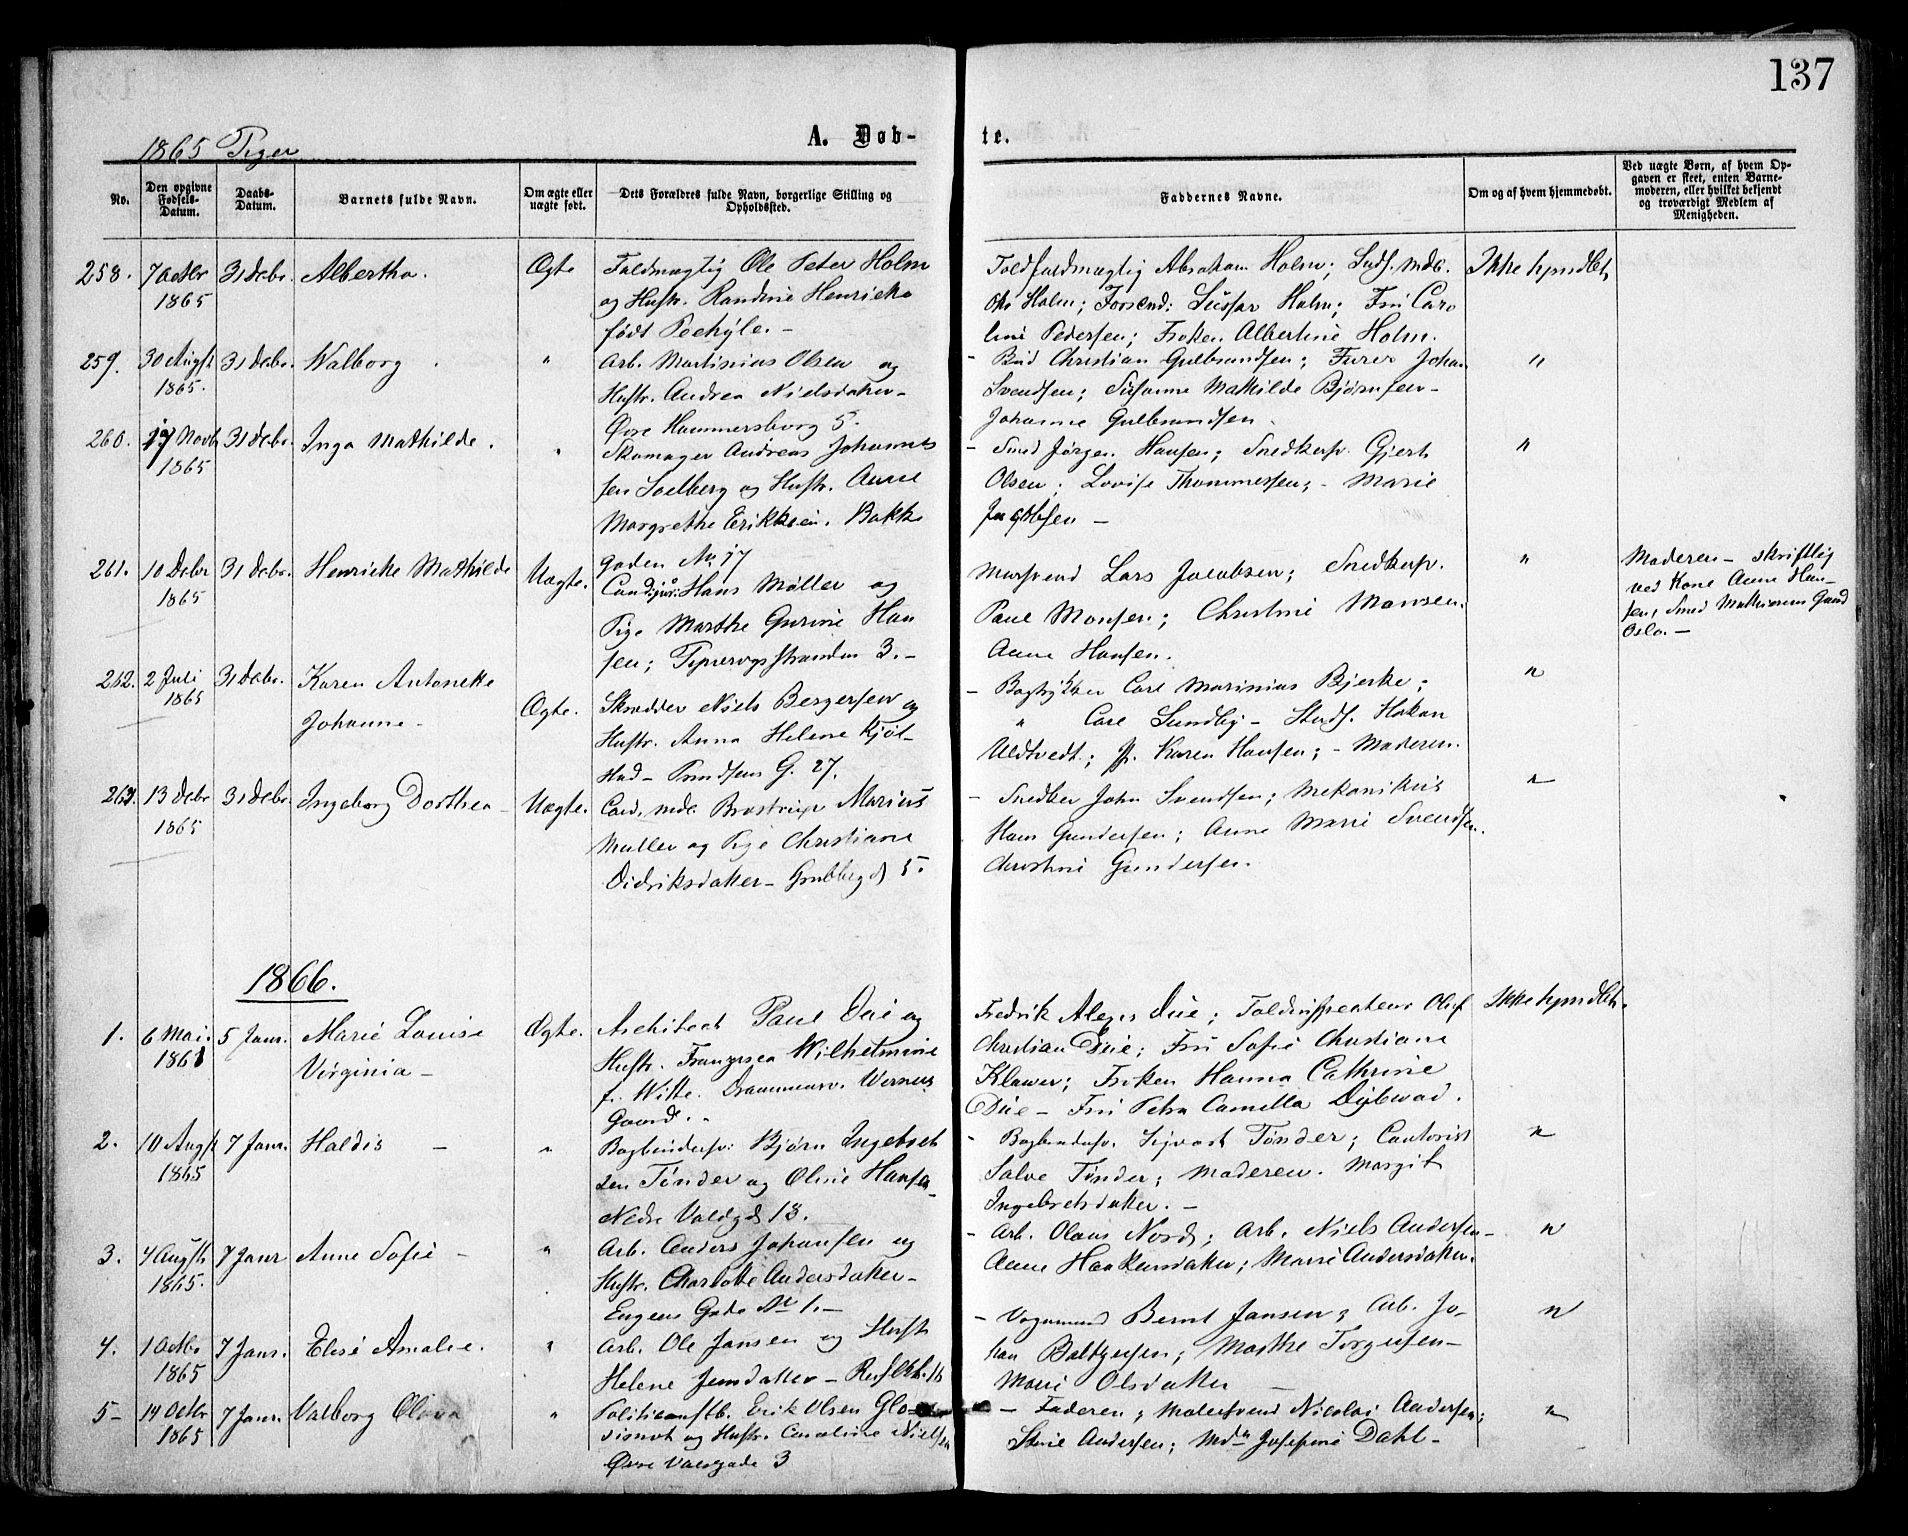 137
1865 Piger
A. Døb-
te.
No.
Den opgivne Fødsels-Datum.
Daabs-Datum.
Barnets fulde Navn.
Om ægte eller uægte født.
Dets Forældres fulde Navn, borgerlige Stilling og Opholdssted.
Faddernes Navne.
Om og af hvem hjemmedøbt.
Ved uægte Børn, af hvem Op-
gaven er skeet, enten Barne-
moderen, eller hvilket bekjendt
og troværdigt Medlem af
Menigheden.
258. 7 Octbr 1865 31 Debr. Albertha. Ægte
Fuldmægtig Ole Peter Holm
og Hustr. Randine Henrieke
født
Toldfuldmægtig Abraham Holm; Lads. mdc.
Holm; Holm; Fru Caro
line Pedersen; Frøken Albertine Holm.
Ikke hjemdbt.
259. 30 Augst 1865. 31 Debr. Walborg "
Arb. Martinius Olsen og
Hustr. Andrea Nielsdatter-
Øvre Hammersborg 5.
- Bud Christian Gulbrandsen; Furer Johan
Svendsen; Susanne Mathilde Bjørnsen-
Johanne Gulbrandsen.
"
260. 17 Novbr 1865 31 Debr. Inga Mathilde. "
Skomager Andreas Johannes
sen Soelberg og Hustr. Anne
Margrethe Eriksen. Bakke
gaden No 17
- Smed Jørgen Hansen; Snedkersv. Gjert
Olsen; Lovise Thommessen; - Marie
Jacobsen -
"
261. 10 Debr 1865 31 Debr. Henrieke Mathilde Uægte.
Cand. jur. Hans Møller og
Pige Marthe Gurine Han
sen; 3. -
Mursvend Lars Jacobsen; Snedkersv.
Paul Monsen; Christine Monsen.
Anne Hansen.
"
Moderen - skriftlig
ved Kone Anne Han-
sen, Smed Gaard
Oslo. -
262. 2 Juli 1865 31 Debr. Karen Antonette
Johanne - Ægte.
Skrædder Niels Bergersen og
Hustr. Anna Helene Kjøl-
stad - G. 27.
- Bogtrykker Carl Marinius Bjerke;
" Carl Sundby - Studs. Hakon
Uldtvedt; Karen Hansen; - Moderen.
"
263. 13 Debr 1865 31 Debr. Ingeborg Dorthea - Uægte.
Cand. mdc. Brostrup Marius
Muller og Pige Christiane
Didriksdatter - Grubbegd 5.
- Snedker John Svendsen; Mekanikus
Hans Gundersen; Anne Marie Svendsen.
Christine Gundersen.
"
1866.
1. 6 Mai 1861 5 Janr. Marie Louise
Virginia - Ægte.
Architect Paul Due og
Hustr. Franzisca Wilhelmine
f. Witte. Drammensv. Werners
Gaard. -
Fredrik Due; Toldinspecteur Oluf
Christian Due; Fru Sofie Christiane
Klawer; Frøken Hanna Cathrine
Due - Fru Petra Camilla Dybwad.
Ikke hjemdbt.
2. 10 Augst 1865 7 Janr. Haldis - "
Bogbindersv. Bjørn Ingebret
sen Tønder og Oline Hansen
Nedre Voldgd 13.
- Bogbindersv. Sigvart Tønder; Cantorist
Salve Tønder; Moderen. Margit
Ingebretsdatter. -
"
3. 4 Augst 1865. 7 Janr Anne Sofie - "
Arb. Anders Johansen og
Hustr. Charlotte Andersdatter -
Eugens Gade No 1. -
- Arb. Olaus Nord; Arb. Niels Andersen -
Anne Haakensdatter; Marie Andersdatter.
"
4. 1 Octbr 1865 7 Janr. Elise Amalie. "
Arb. Ole Jansen og Hustr
Helene Jensdatter -
- Vognmand Bernt Jansen; Arb. Jo-
han Baltzersen; Marthe Torgersen -
Marie Olsdatter -
"
5 - 14 Octbr 1865 7 Janr. Valborg Olava "
Politiconstb. Erik Olsen Glo-
og Hustr. Caroline Nielsen
Øvre Voldgade 3
- Faderen; Malersvend Nicolai Andersen;
Andersen; Mdm Josephine Dahl -
"